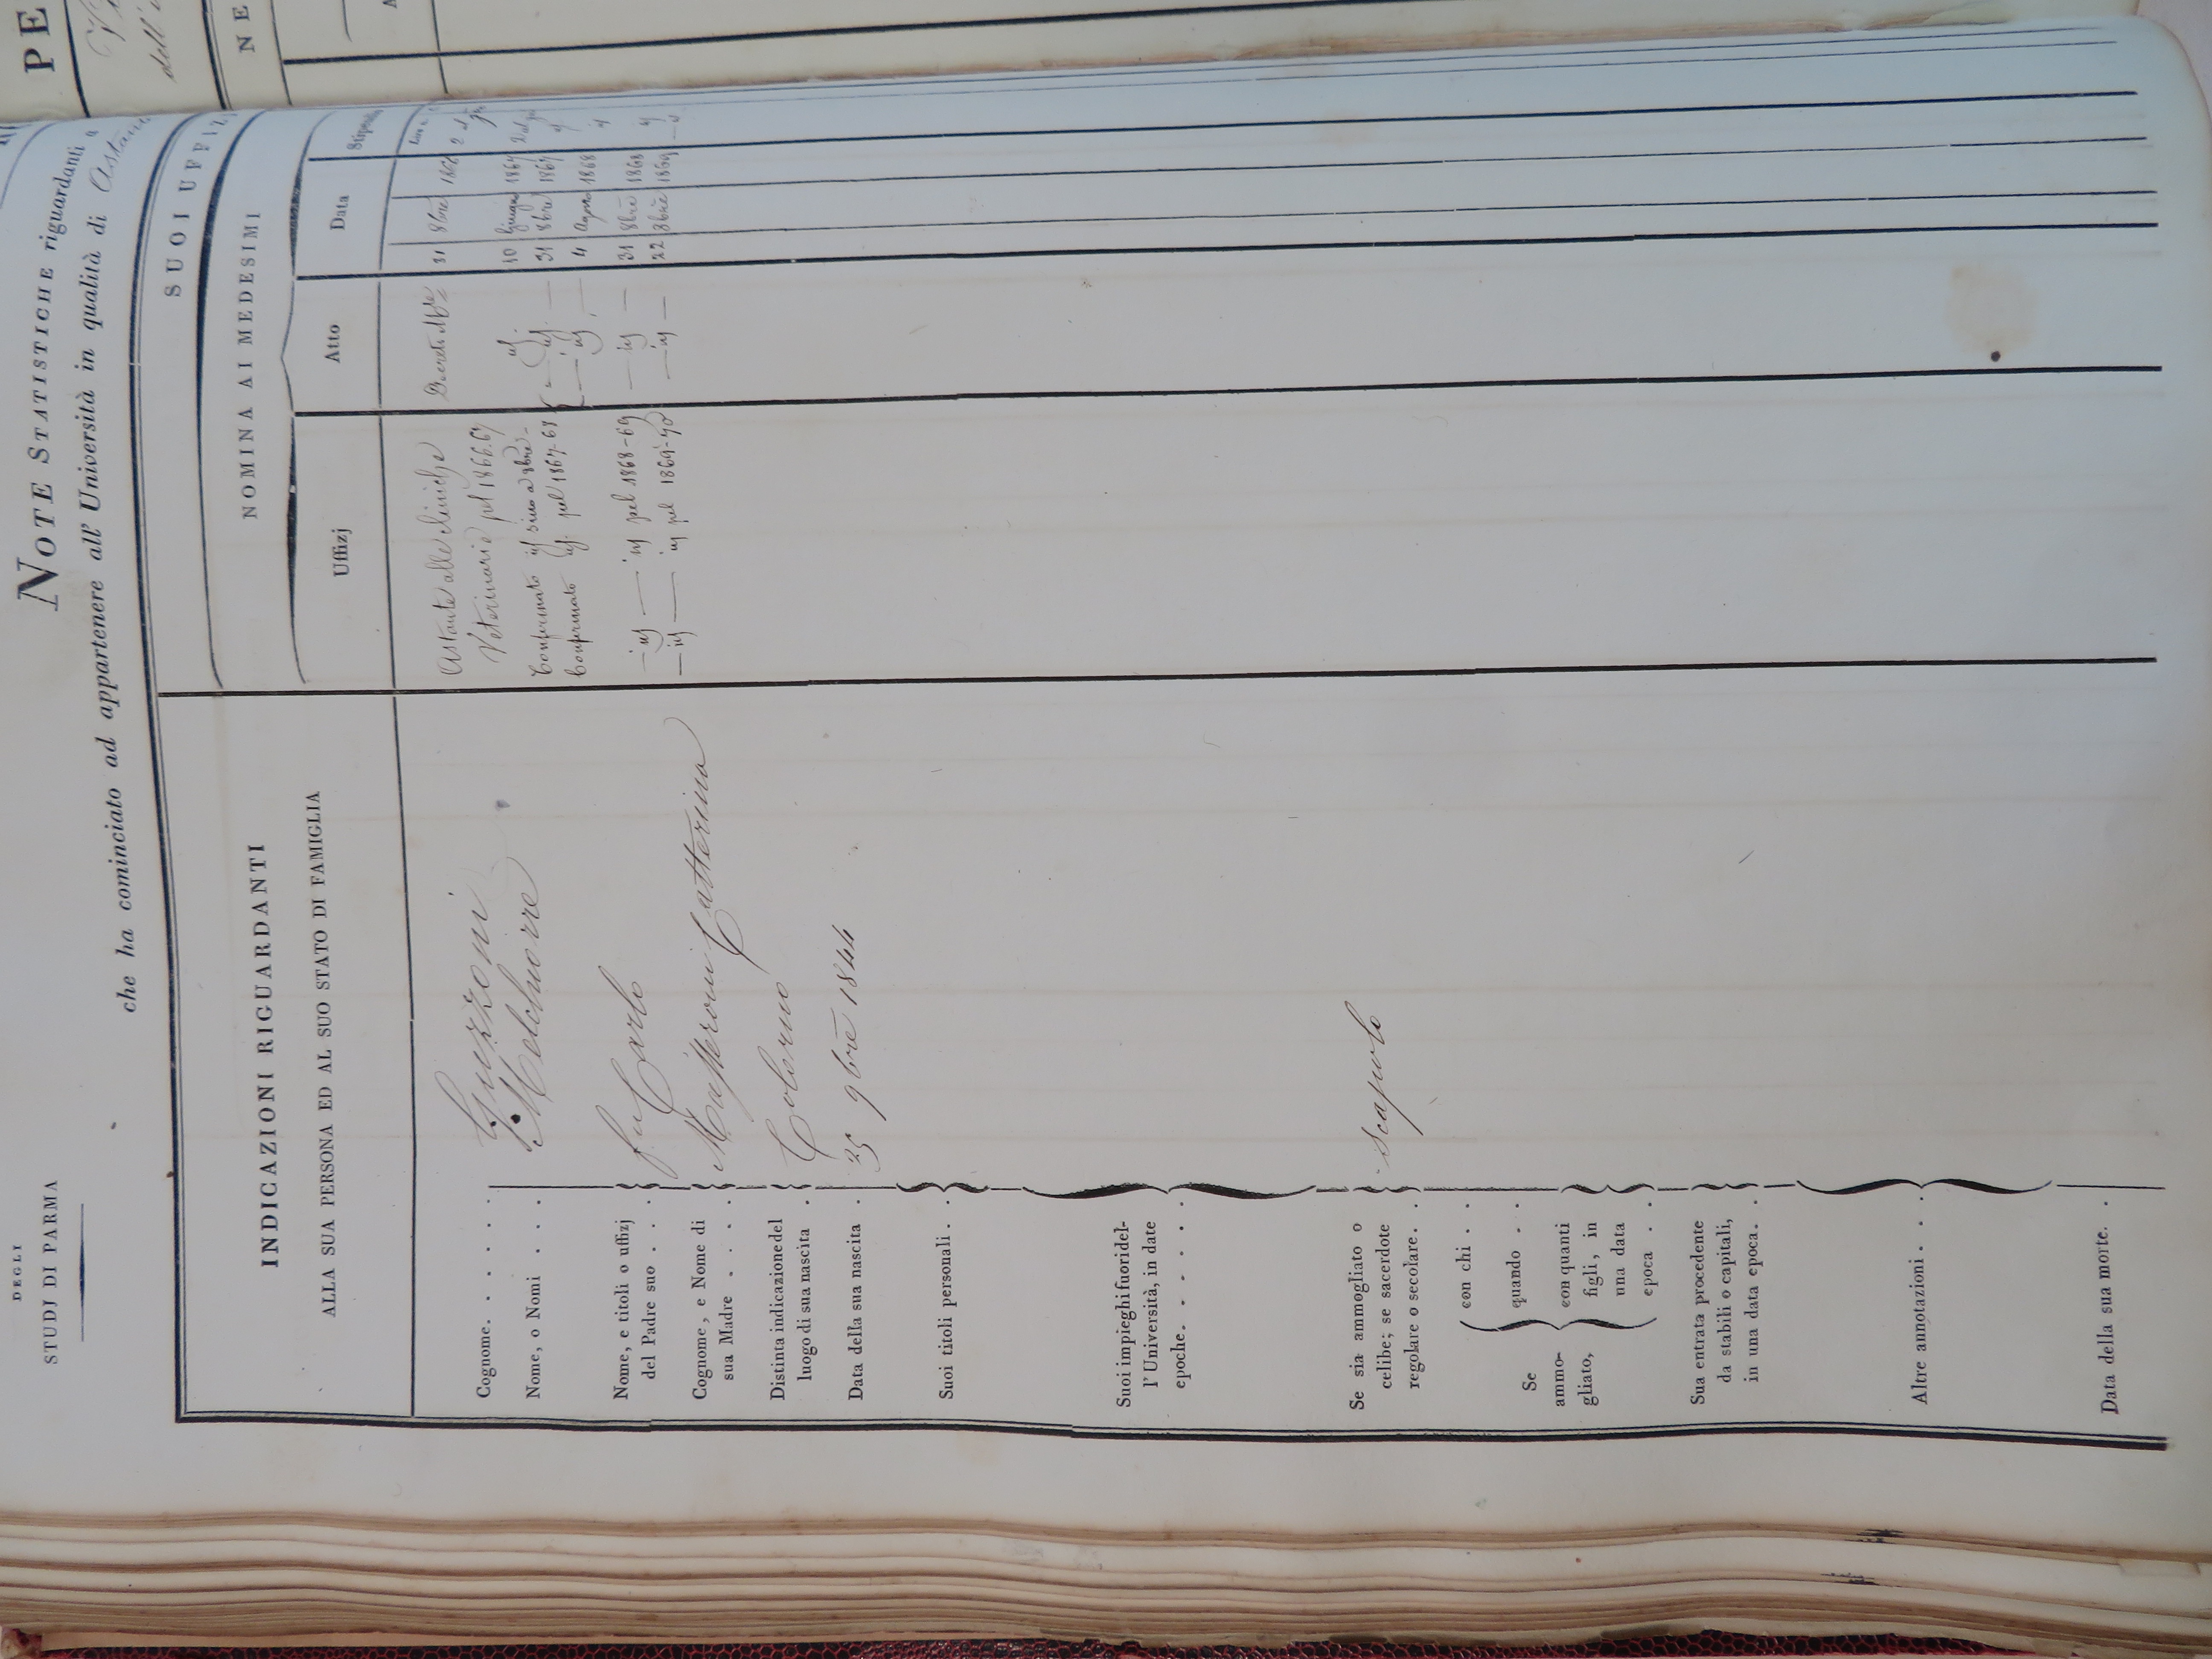 DEGLI
STUDJ DI PARMA
NOTE STATISTICHE riguardanti
che ha cominciato ad appartenere all' Università in qualità di Astante
INDICAZIONI RIGUARDANTI
ALLA SUA PERSONA ED AL SUO STATO DI FAMIGLIA
SUOI UFFIZJ
NOMINA AI MEDESIMI
Uffizj
Atto
Data
Stipendio
Cognome. . . . . . Guzzoni
Nome, o Nomi . . . . Melchiorre
Nome, e titoli o uffizj
del Padre suo . . . fu Carlo
Cognome, e Nome di
sua Madre . . . . Masseroni Catterina
Distinta indicazione del
luogo di sua nascita . Colorno
Data della sua nascita . 25 9bre 1844
Suoi titoli personali . .
Suoi impieghi fuori del-
l' Università, in date
epoche. . . . . .
Se sia ammogliato o
celibe; se sacerdote
regolare o secolare. . . scapolo
Se
ammo-
gliato,
con chi . .
quando . .
con quanti
figli, in
una data
epoca . .
Sua entrata procedente
da stabili o capitali,
in una data epoca. .
Altre annotazioni . . . .
Data della sua morte. .
Astante alle cliniche
Veterinarie pel 1866.67 Decreto 31 8bre 1866 2
Confermato id sino a 8bre id. 10 Giugno 1867
Confermato id. pel 1867-68 — id. — 31 8bre 1867
— id — 4 Agosto 1868
— id — id pel 1868-69 — id — 31 8bre 1868
— id — id pel 1869-70 — id — 22 8bre 1869
PE
dell'
NE